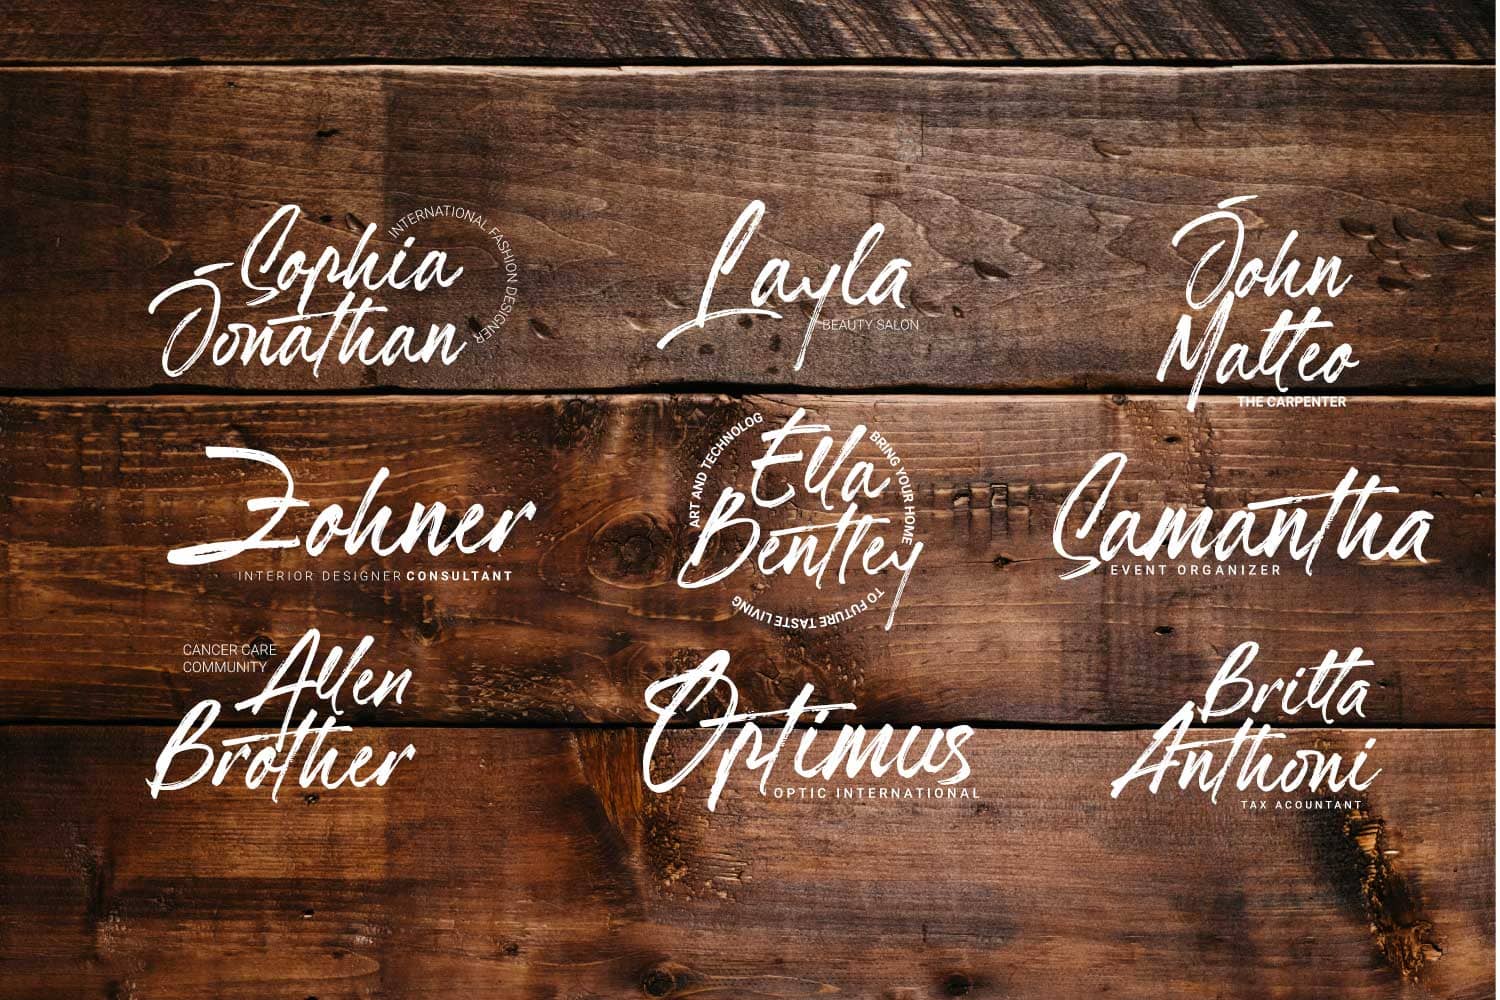 Sophia
Jonathan
INTERNATIONAL FASHION DESIGNER
Layla
BEAUTY SALON
John
Matteo
THE CARPENTER
Zohner
INTERIOR DESIGNER CONSULTANT
ART AND TECHNOLOG
Ella
Bentley
BRING YOUR HOME
TO FUTURE TASTE LIVING
Samantha
EVENT ORGANIZER
CANCER CARE
COMMUNITY
Allen
Brother
Optimus
OPTIC INTERNATIONAL
Britta
Anthoni
TAX ACOUNTANT